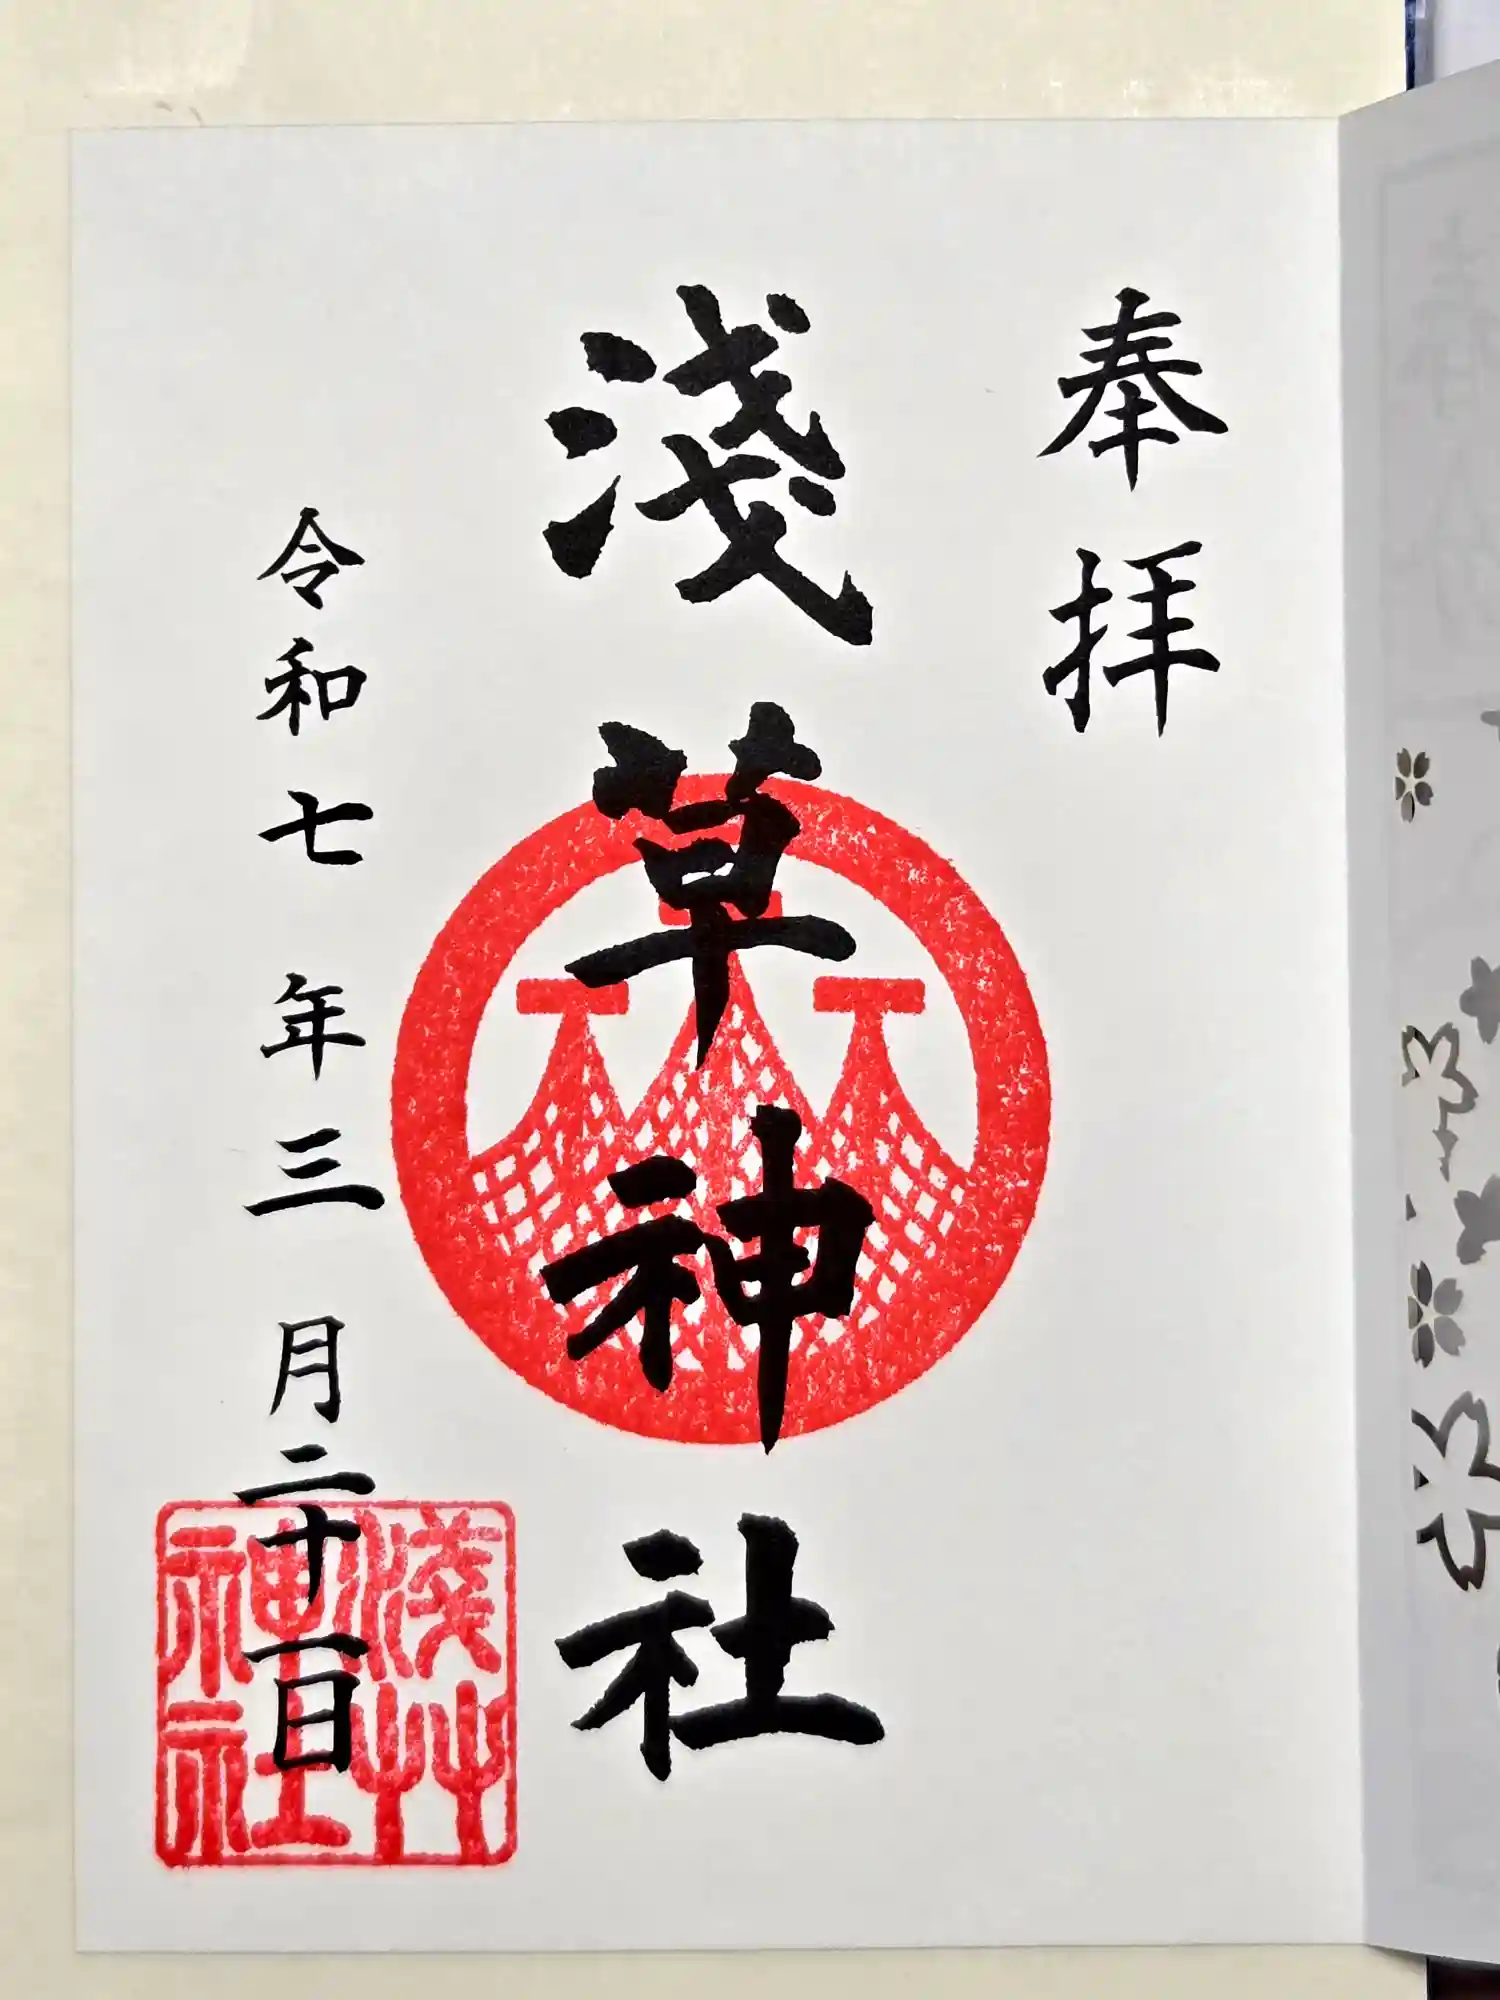 奉拝
淺草神社
令和七年三月二十一日
淺艸
神社